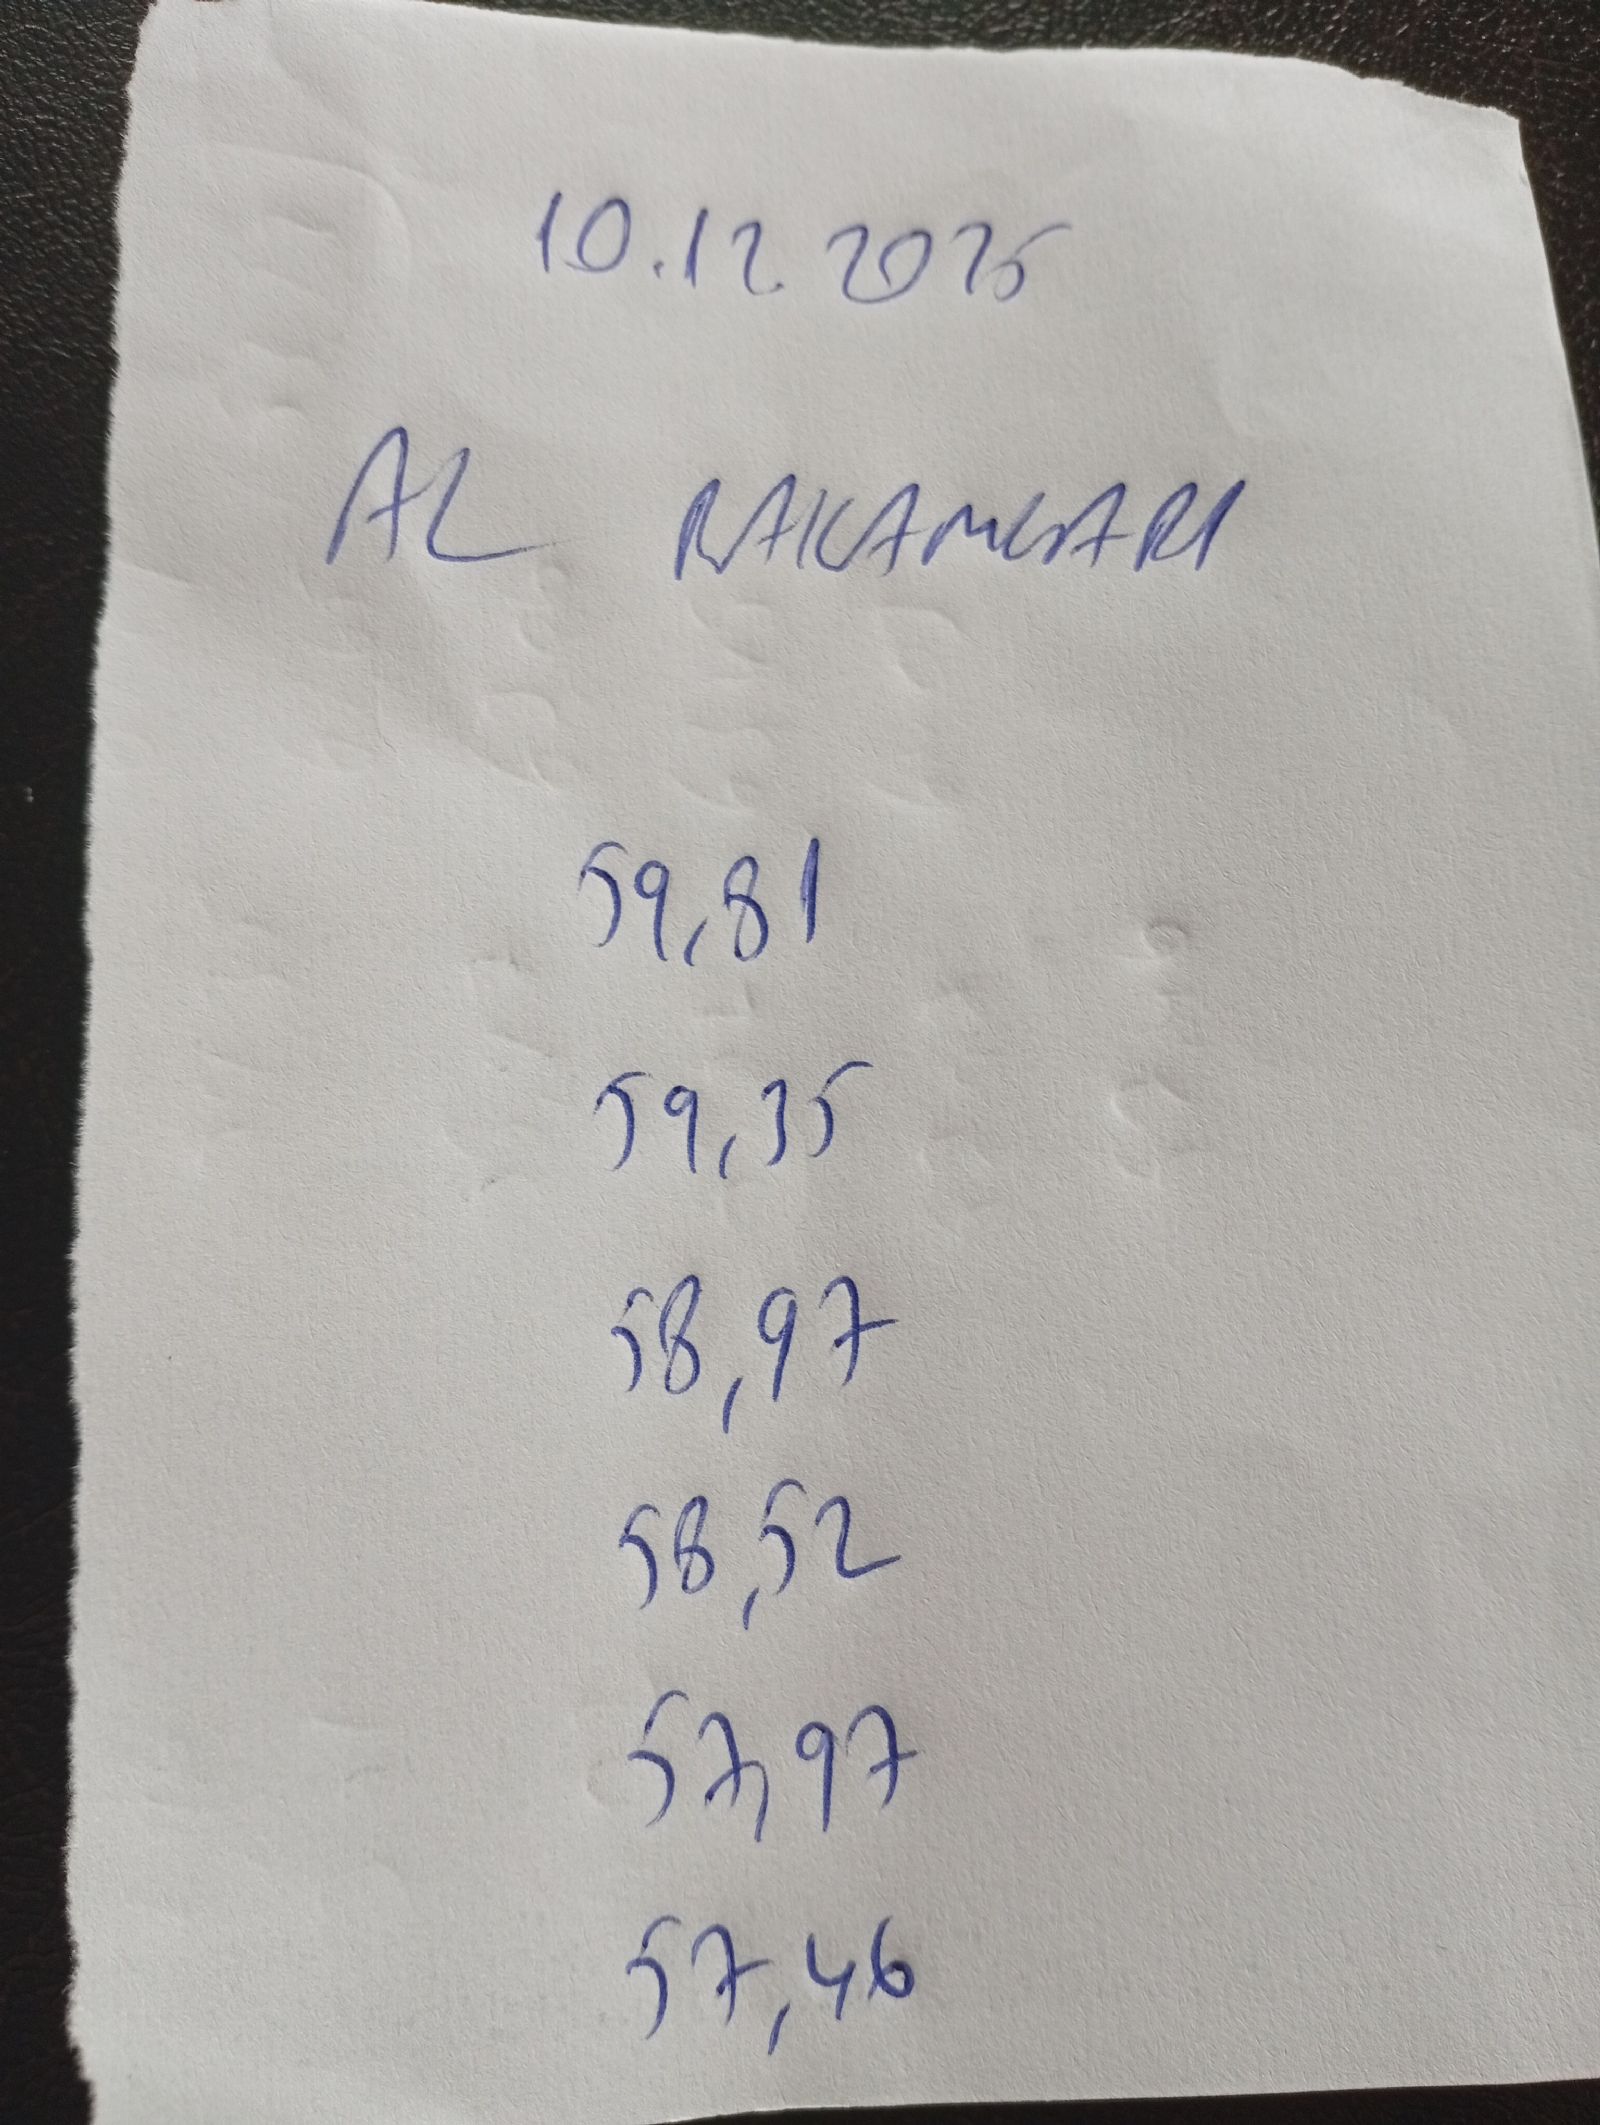 10.12.2025
AL RAKAMLARI
59,81
59,35
58,97
58,52
57,97
57,46